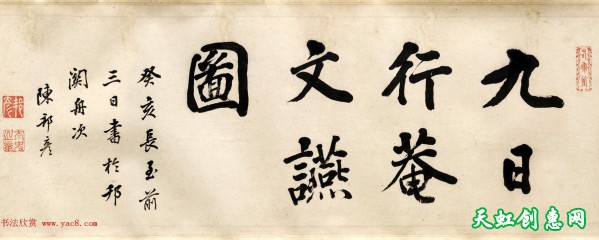 九日
行菴
文讌
圖
癸亥長至前
三日書於邗
關舟次
陳邦彥
书法欣赏 www.yac8.com
天虹创惠网